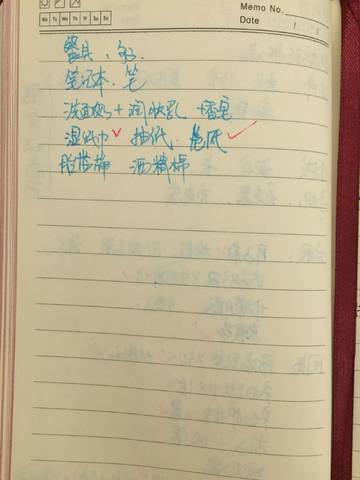 Memo No.
Mo Tu We Th Fr Sa Su
Date / /
餐具,
笔记本、笔
洗面奶+润肤乳+香皂
湿纸巾✓ 抽纸 卷纸✓
酒精棉